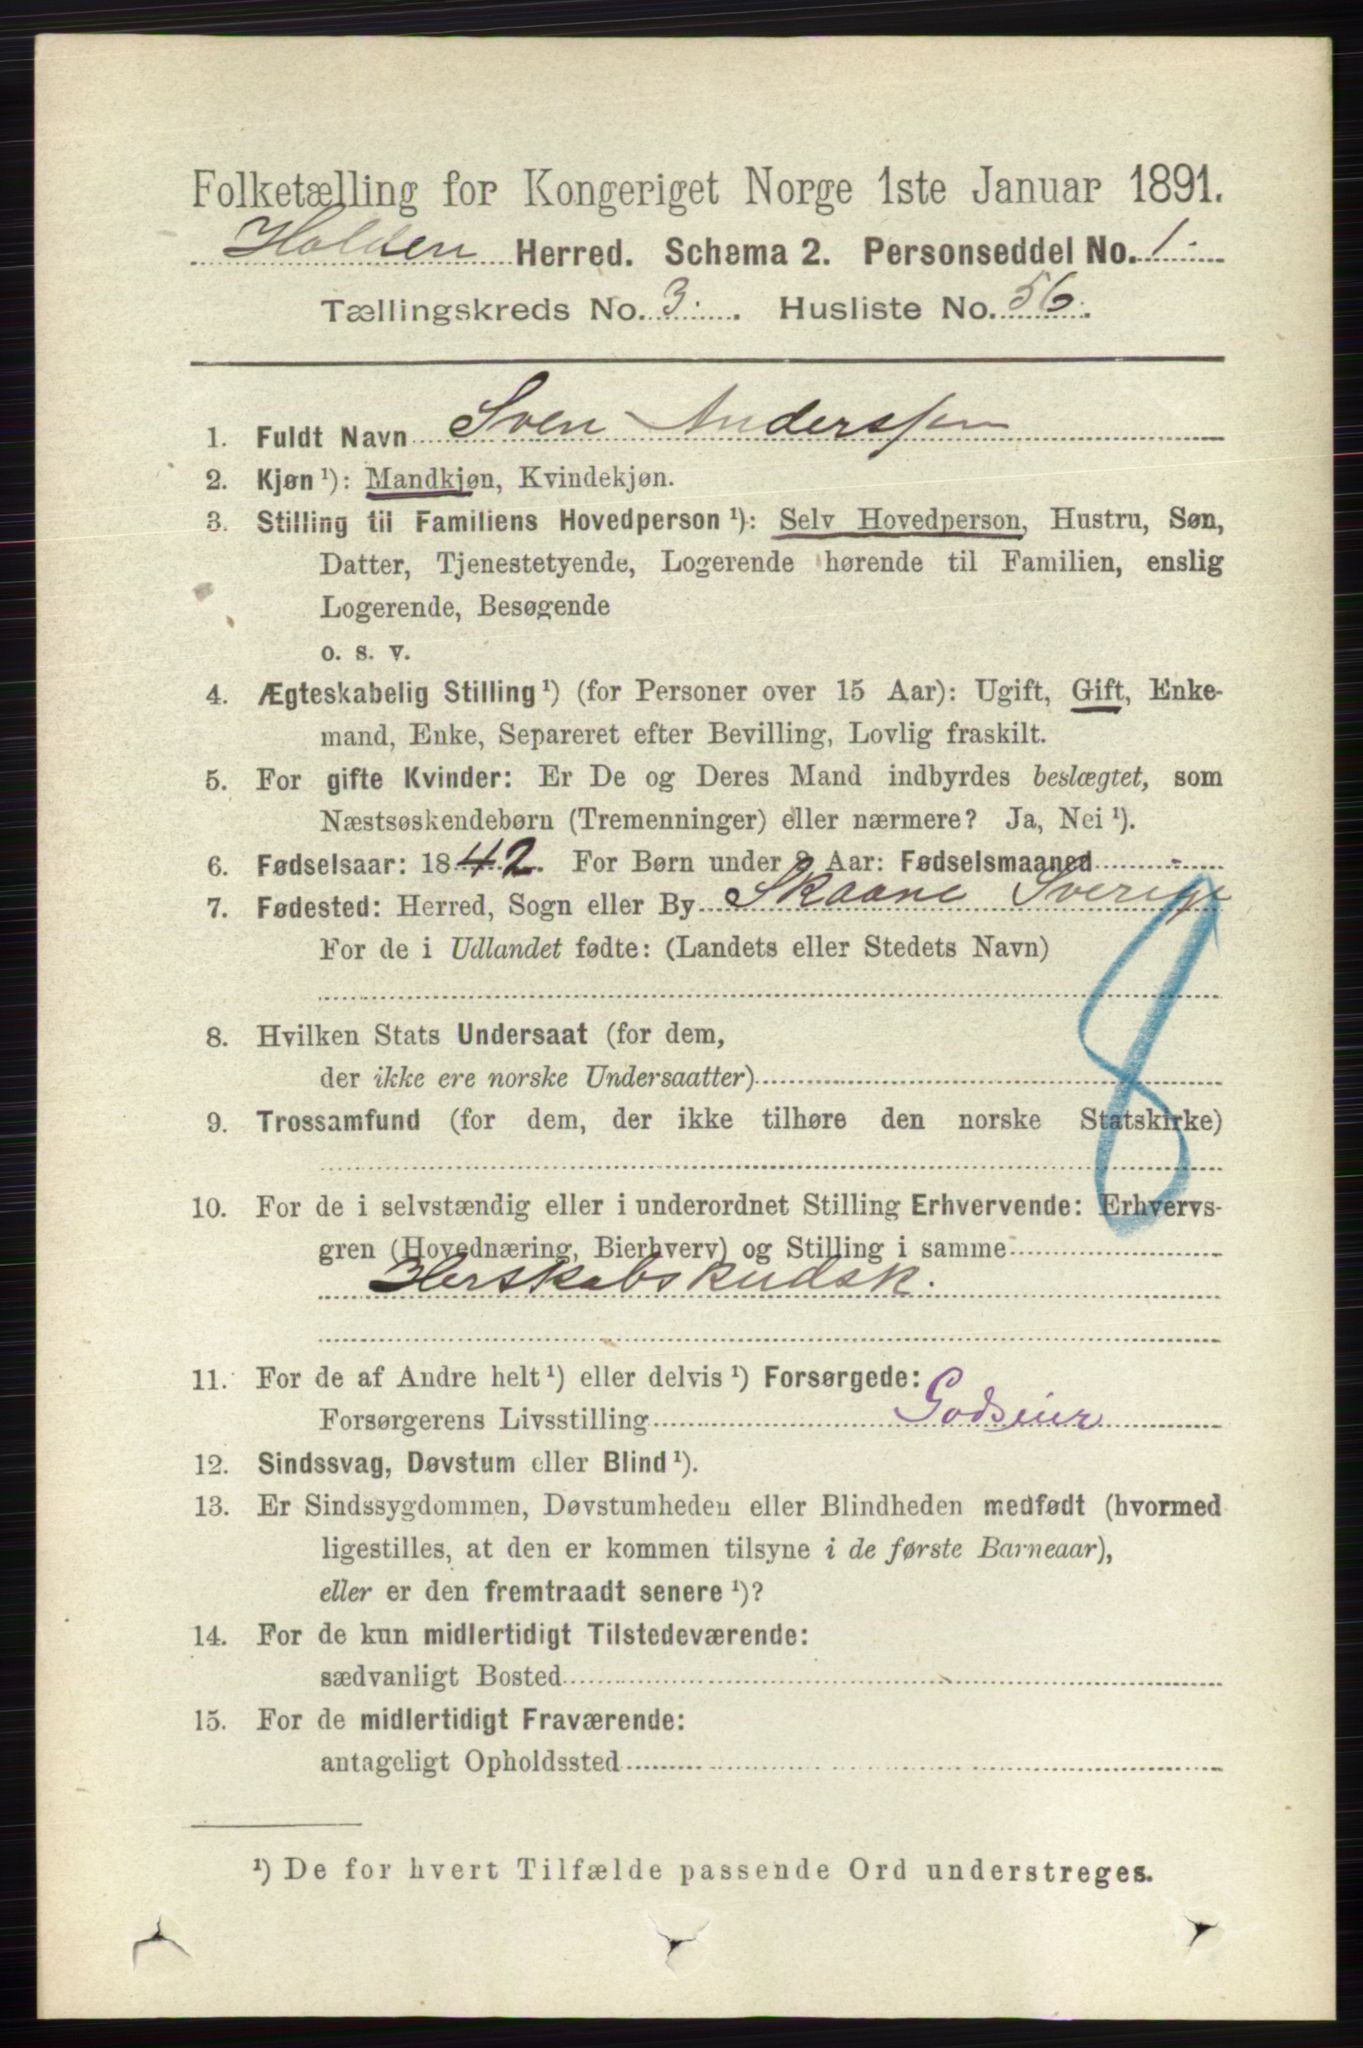 Folketælling for Kongeriget Norge 1ste Januar 1891.
Holden Herred. Schema 2. Personseddel No. 1.
Tællingskreds No. 3. Husliste No. 56.
1. Fuldt Navn Sven Anderssen
2. Kjøn ¹): Mandkjøn, Kvindekjøn.
3. Stilling til Familiens Hovedperson ¹): Selv Hovedperson, Hustru, Søn,
Datter, Tjenestetyende, Logerende hørende til Familien, enslig
Logerende, Besøgende
o. s. v.
4. Ægteskabelig Stilling ¹) (for Personer over 15 Aar): Ugift, Gift, Enke-
mand, Enke, Separeret efter Bevilling, Lovlig fraskilt.
5. For gifte Kvinder: Er De og Deres Mand indbyrdes beslægtet, som
Næstsøskendebørn (Tremenninger) eller nærmere? Ja, Nei ¹).
6. Fødselsaar: 1842. For Børn under 2 Aar: Fødselsmaaned -
7. Fødested: Herred, Sogn eller By Skaane Sverige
For de i Udlandet fødte: (Landets eller Stedets Navn)
8
8. Hvilken Stats Undersaat (for dem,
der ikke ere norske Undersaatter)
9. Trossamfund (for dem, der ikke tilhøre den norske Statskirke)
10. For de i selvstændig eller i underordnet Stilling Erhvervende: Erhvervs-
gren (Hovednæring, Bierhverv) og Stilling i samme
Herskabskudsk.
11. For de af Andre helt ¹) eller delvis ¹) Forsørgede:
Forsørgerens Livsstilling Godseier
12. Sindssvag, Døvstum eller Blind ¹).
13. Er Sindssygdommen, Døvstumheden eller Blindheden medfødt (hvormed
ligestilles, at den er kommen tilsyne i de første Barneaar),
eller er den fremtraadt senere ¹)?
14. For de kun midlertidigt Tilstedeværende:
sædvanligt Bosted
15. For de midlertidigt Fraværende:
antageligt Opholdssted
¹) De for hvert Tilfælde passende Ord understreges.